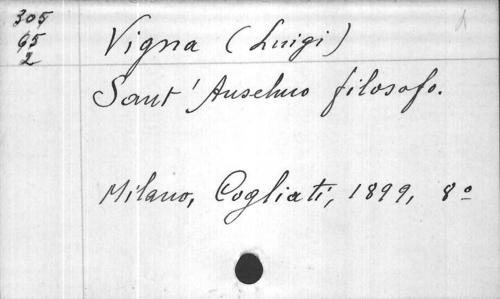 305
65
2
Vigna (Luigi)
Sant' Anselmo filosofo.
Milano, Cogliati, 1899, 8º